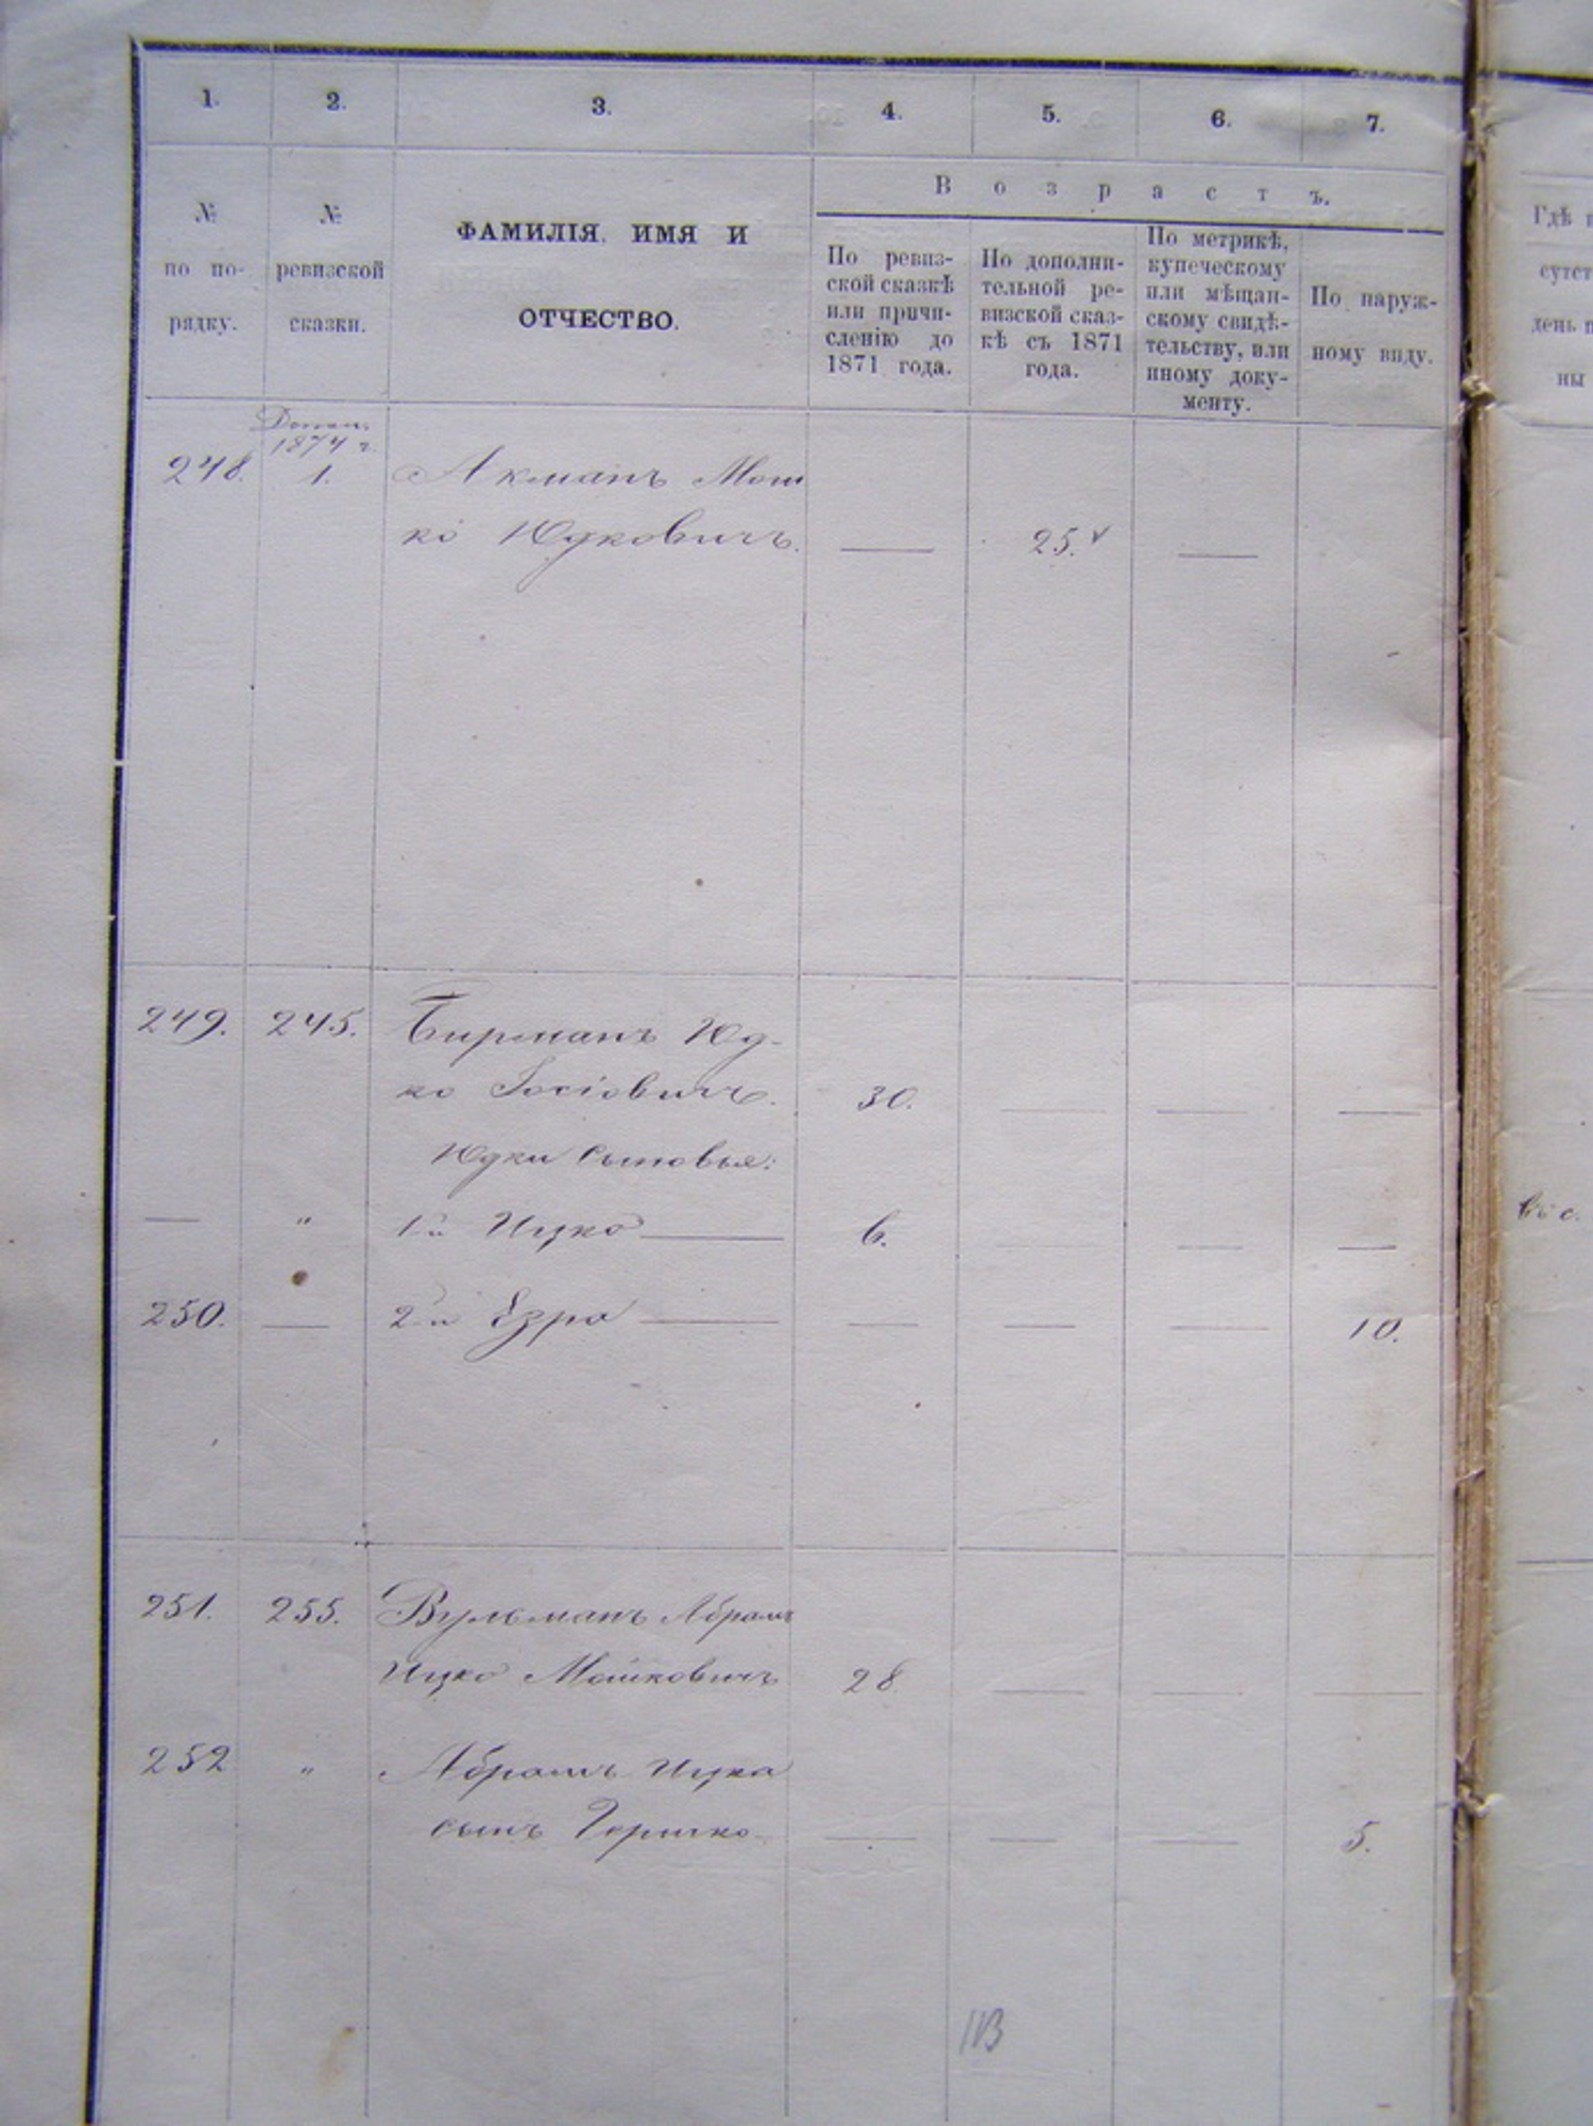 1. 2. 3. 4. 5. 6. 7.
№
по по-
рядку.
№
ревизской
сказки.
ФАМИЛІЯ, ИМЯ И
ОТЧЕСТВО.
Возрастъ.
По ревиз-
ской сказкѣ
или причи-
сленію до
1871 года.
По дополни-
тельной ре-
визской сказ-
кѣ съ 1871
года.
По метрикѣ,
купеческому
или мѣщан-
скому свидѣ-
тельству, или
иному доку-
менту.
По наруж-
ному виду.
Гдѣ
сутст
день
ны
1874 г.
248. 1. Акманъ Мош
ко Юдковичъ. — 25. —
249. 245. Бирманъ Юд-
ко Іосіовичъ. 30. — — —
Юдки сыновья:
— " 1й Ицко — 6. — — —
250. — 2й Езро — — — — 10.
251. 255. Вульманъ Абрамъ
Ицко Мошковичъ 28 — — —
252 " Абрамъ Ицка
сынъ Гершко — — — 5.